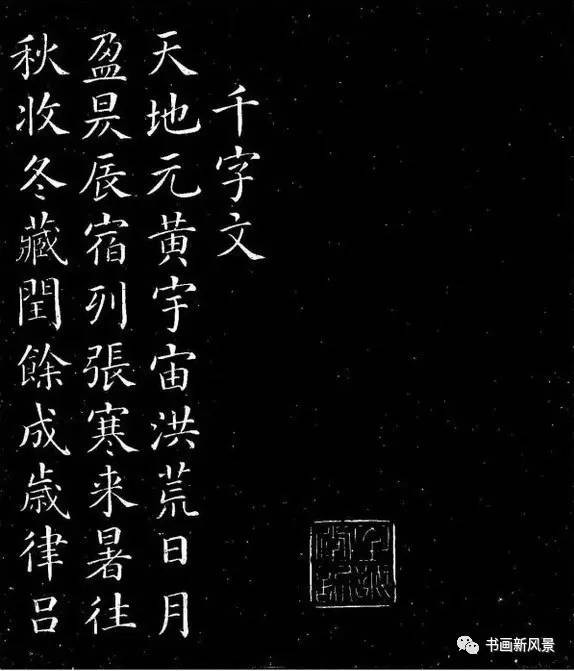 千字文
天地元黄宇宙洪荒日月
盈昃辰宿列張寒来暑往
秋收冬藏閏餘成歲律吕
书画新风景